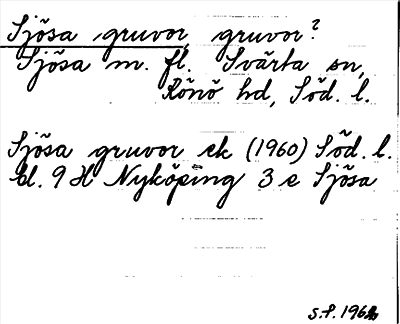 Sjösa gruvor, gruvor?
Sjösa m. fl. Svärta sn,
Rönö hd, Söd. l.
Sjösa gruvor ek (1960) Söd. l.
bl. 9 H Nyköping 3 e Sjösa